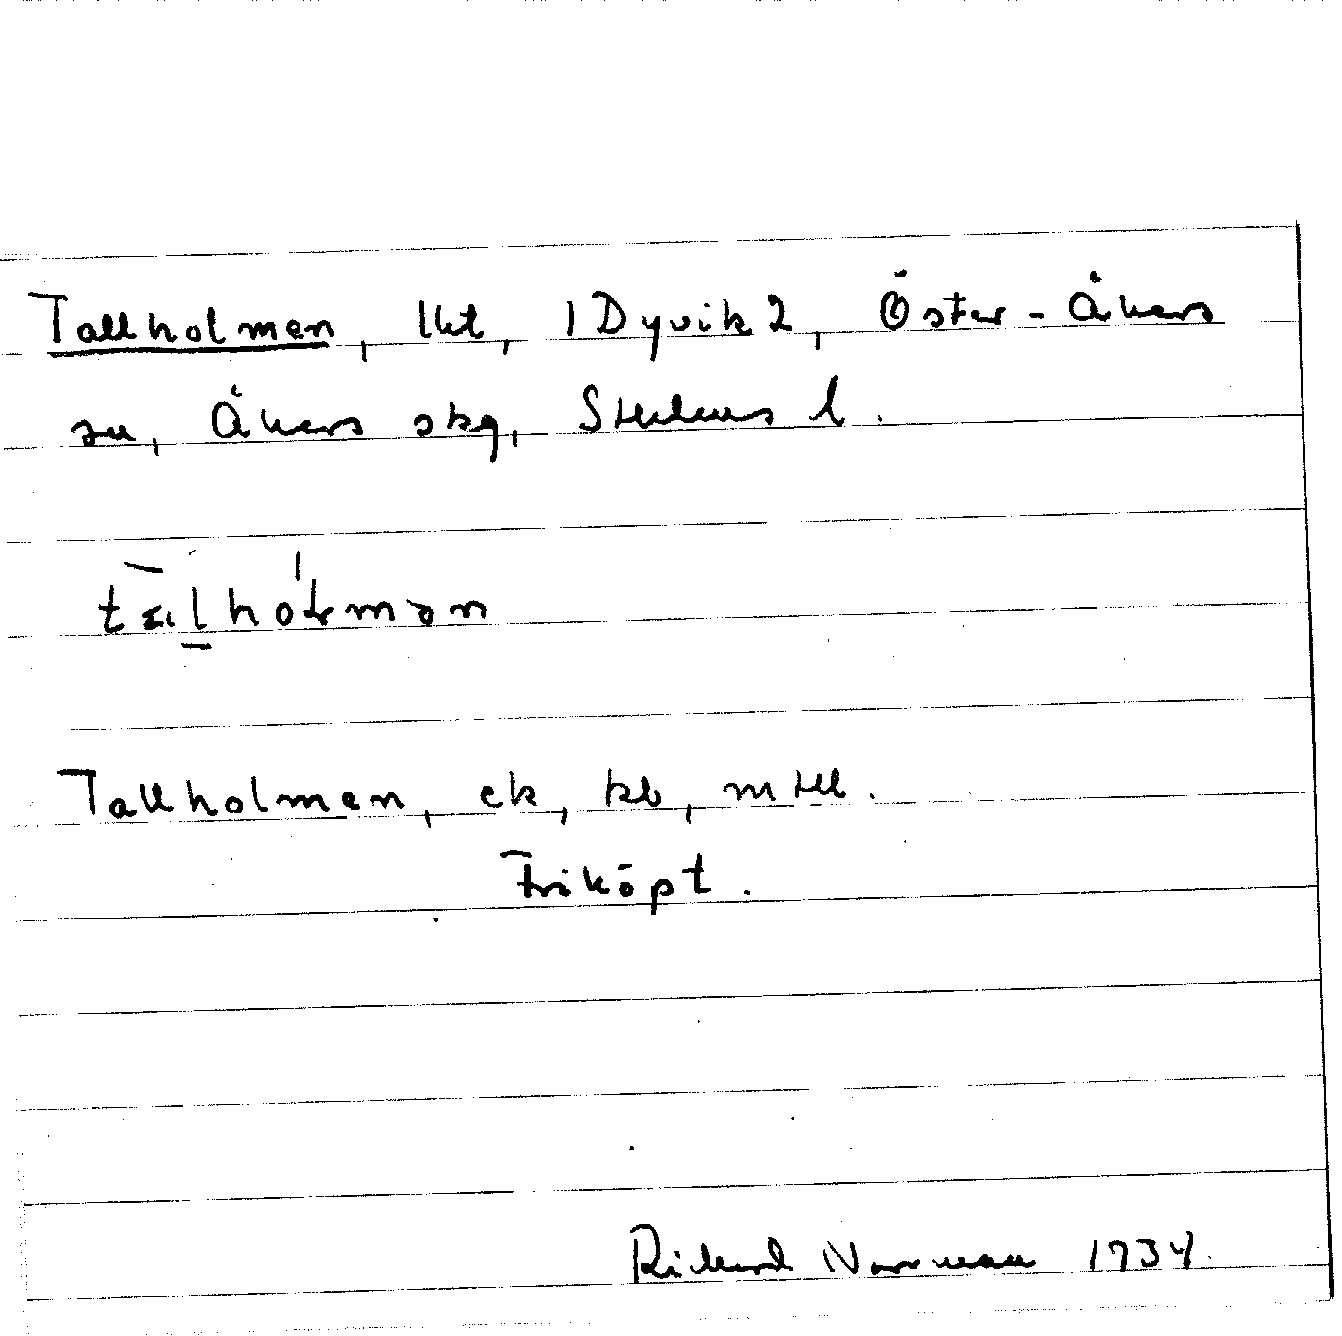 Tallholmen, lht, 1 Dyvik 2, Öster-Åkers
sn, Åkers skg, Sthlms l.
Tallholmen, ek, kb, mtll.
Friköpt.
Richard Norrman 1934.